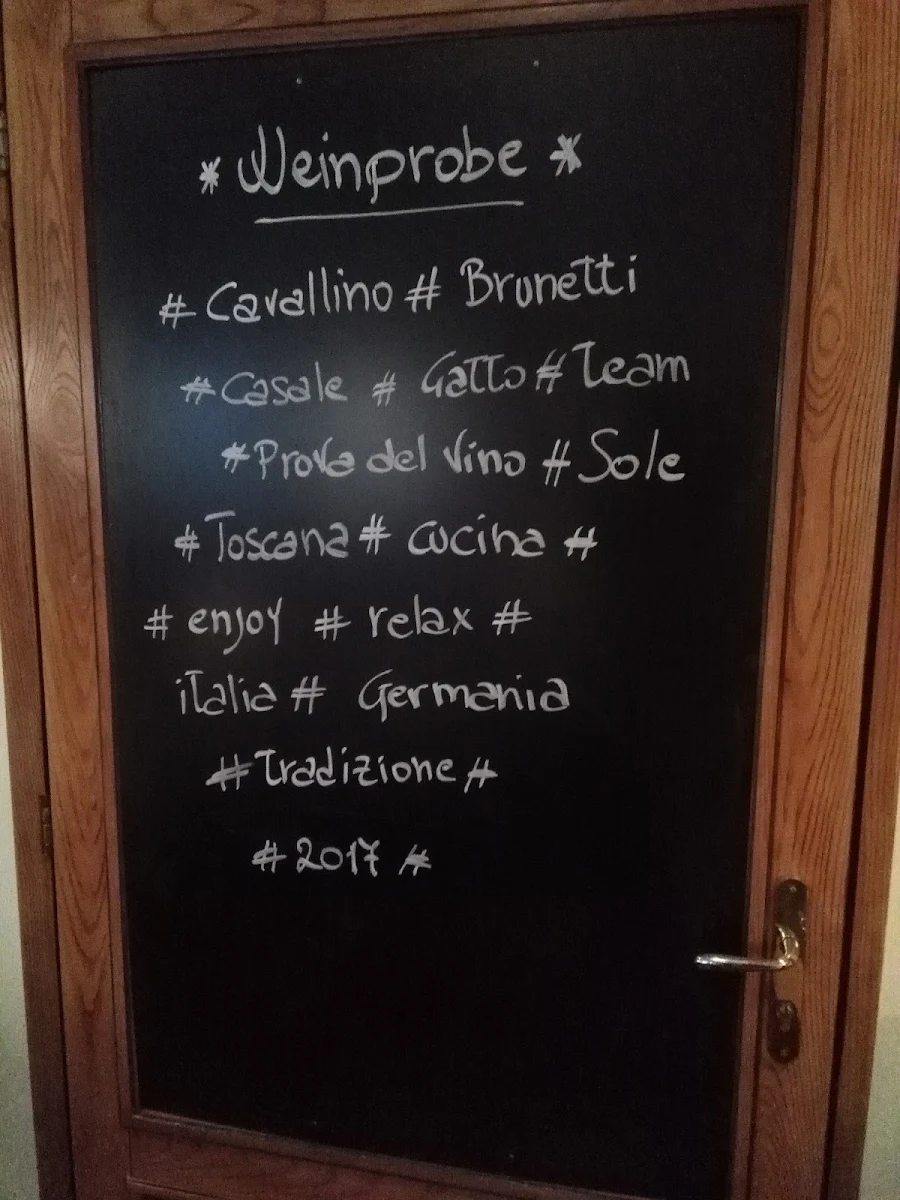 * Weinprobe *
# Cavallino # Brunetti
# Casale # Gatto # Team
# Prova del Vino # Sole
# Toscana # cucina #
# enjoy # relax #
italia # Germania
# Tradizione #
# 2017 #